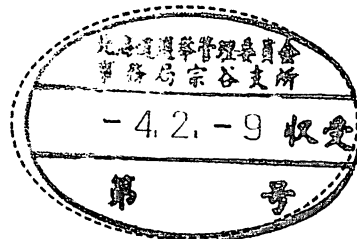 北海道選挙管理委員会
事務局宗谷支所
-4.2.-9 収受
第 号